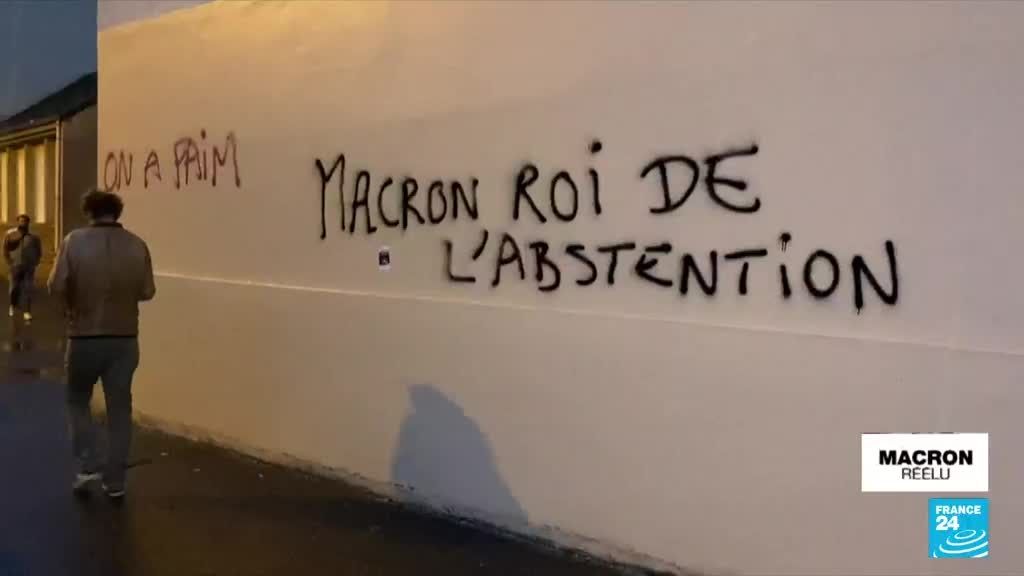 ON A FAIM
MACRON ROI DE
L'ABSTENTION
MACRON
RÉÉLU
FRANCE
24